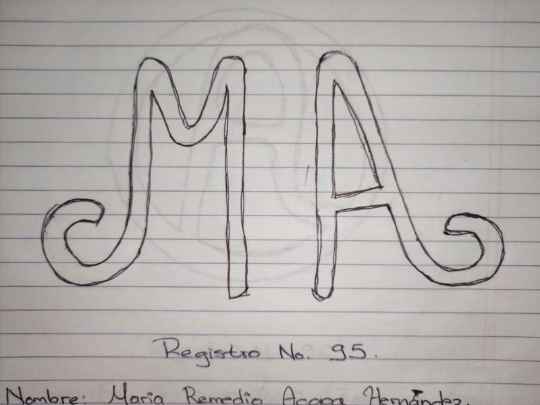 MA
Registro No. 95.
Nombre: Maria Remedio Acopa Hernández.